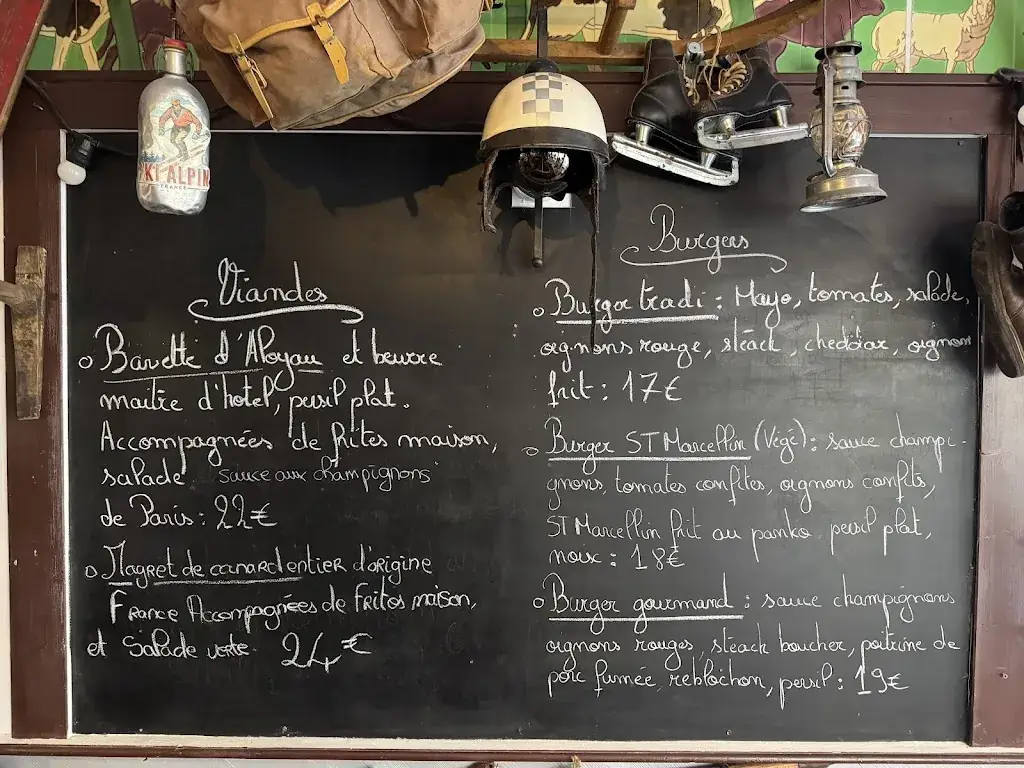 SKI ALPIN
FRANCE
Viandes
Bavette d'Aloyau et beurre
maitre d'hotel, persil plat.
Accompagnées de frites maison,
salade sauce aux champignons
de Paris : 22€
Magret de canard entier d'origine
France Accompagnées de frites maison,
et Salade verte. 24€
Burgers
Burger tradi : Mayo, tomates, salade,
oignons rouge, steack, cheddar, oignons
frit : 17€
Burger ST Marcellin (Végé) : sauce champi-
gnons, tomates confites, oignons confits,
ST Marcellin frit au panko, persil plat,
noix : 18€
Burger gourmand : sauce champignons
oignons rouges, steack boucher, poitrine de
porc fumée, reblochon, persil : 19€